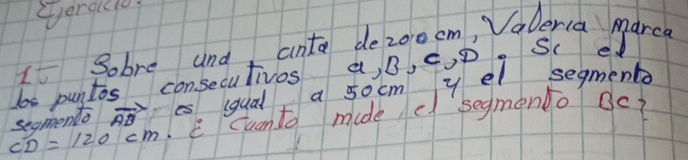 Ejercicio.
1- Sobre und cinta de 200 cm, Valeria marca
los puntos consecutivos a, B, C, D. Si el
segmento AB es igual a 50cm y el segmento
CD = 120 cm. ¿ Cuanto mide el segmento BC?